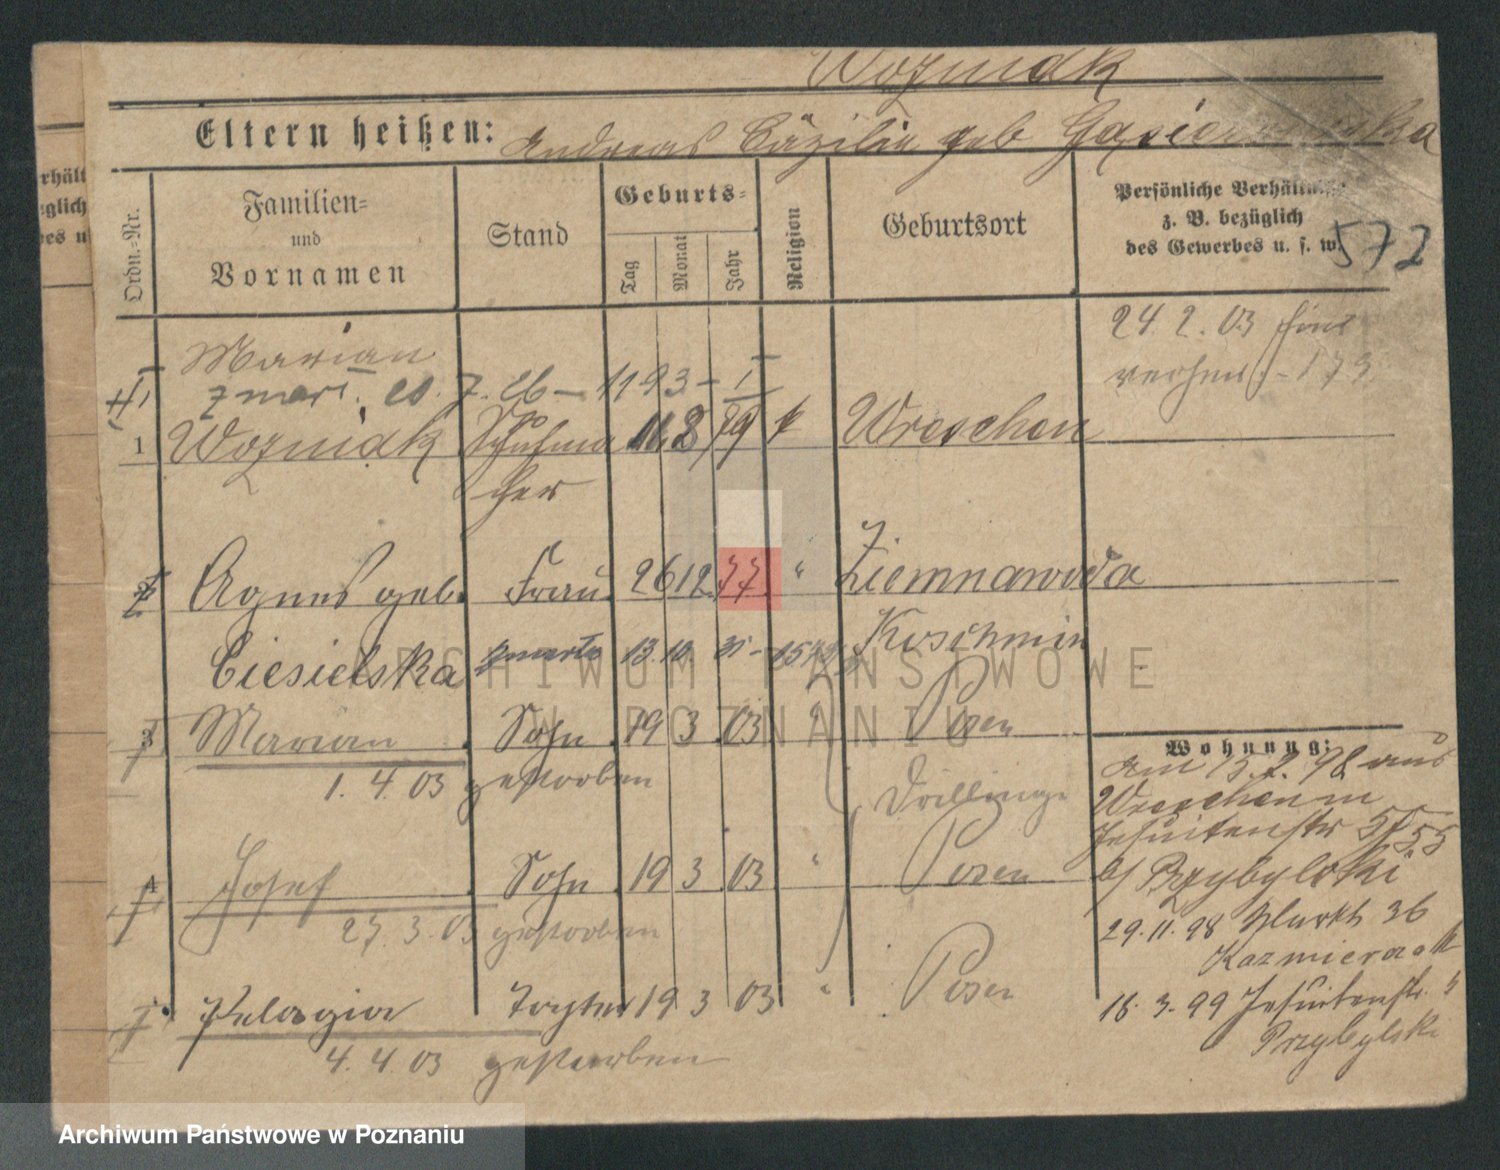 Wozniak
Eltern heißen: Andreas Cäzilie geb
Ordn.-Nr.
Familien-
und
Vornamen
Stand
Geburts-
Tag
Monat
Jahr
Religion
Geburtsort
Persönliche Verhältnisse
z. B. bezüglich
des Gewerbes u. s. w.
572
24. 2. 03
173
Marian
zmarł. 20. 7. 26 – 1193 – I
1 Wozniak Schuhma 11 8 79 k Wreschen
cher
2 Agnes geb. Frau 26 12 77 " Ziemnawoda
Ciesielska zmarła 13. 10. 31 - Koschmin
3 Marian Sohn 19 3 03 " Posen
1. 4. 03 gestorben
Drillinge
4 Josef Sohn 19 3 03 " Posen
27. 3. 03 gestorben
Pelagia Tochter 19 3 03 " Posen
4. 4. 03 gestorben
Wohnung:
am 15. 2. 98 aus
Wreschen n
Jesuitenstr
b/ Przybylski
29. 11. 98 Markt 36
Kazmierczak
18. 3. 99 Jesuitenstr. 5
Przybylski
rhält
glich
es u
ARCHIWUM PAŃSTWOWE
W POZNANIU
Archiwum Państwowe w Poznaniu